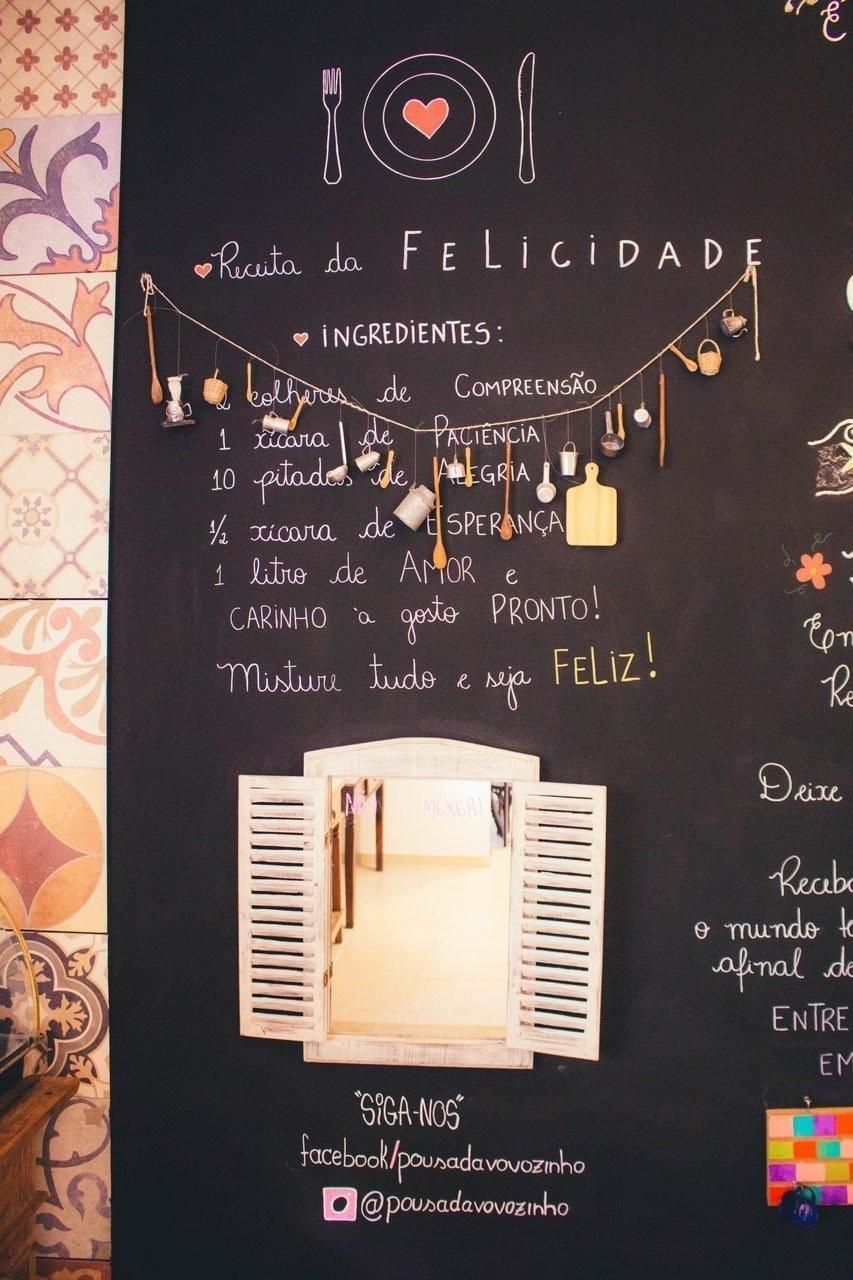 Receita da FELICIDADE
INGREDIENTES:
2 colheres de COMPREENSÃO
1 xícara de PACIÊNCIA
10 pitadas de ALEGRIA
½ xícara de ESPERANÇA
1 litro de AMOR e
CARINHO à gosto PRONTO!
Misture tudo e seja FELIZ!
MEXER!
"SIGA-NOS"
facebook/pousadavovozinho
@pousadavovozinho
E
En
Re
Deixe
Receb
o mundo
afinal de
ENTRE
EM